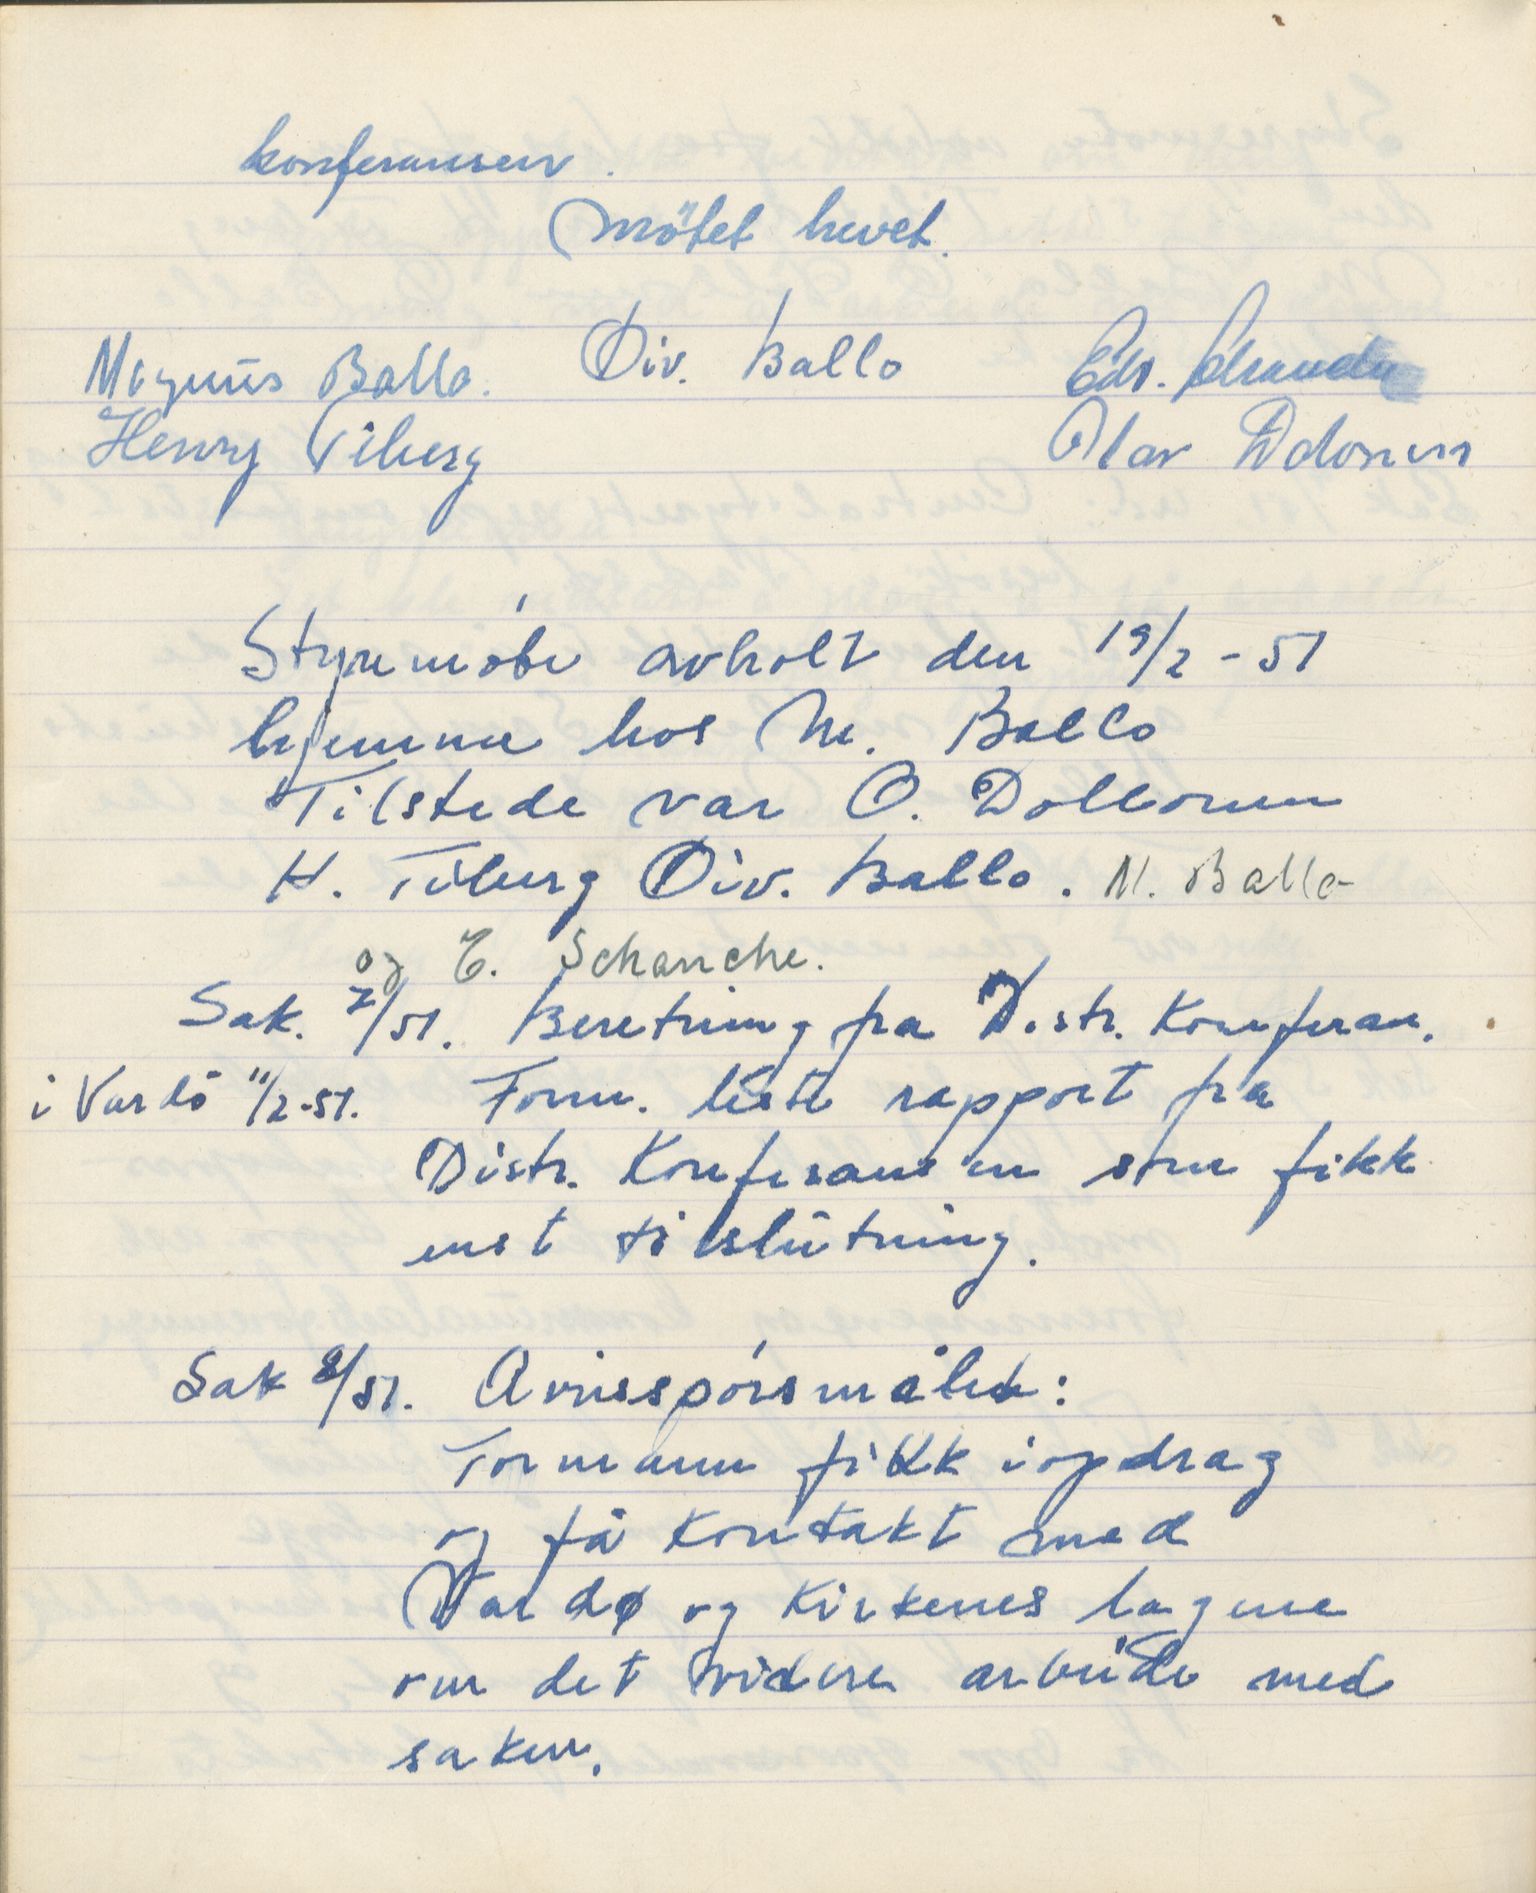 konferansen.
Møtet hevet.
Magnus Ballo. Div. Ballo Edv. Schanche
Henry Tiberg Olav Ddonen
Styremøte avholt den 19/2-51
hjemme hos M. Ballo
Tilstede var O. Dollonen
H. Tiberg Div. Ballo. M. Ballo
og E. Schanche.
Sak. 7/51. Beretning fra Distr. Konferan.
i Vardö 11/2-51. Form. leste rapport fra
Distr. Konferansen som fikk
enst tilslutning.
Sak 8/51. Avisspórsmålet:
Formann fikk i opdrag
og få Kontakt med
Vardø og Kirkenes lagene
om det videre arbeide med
saken.